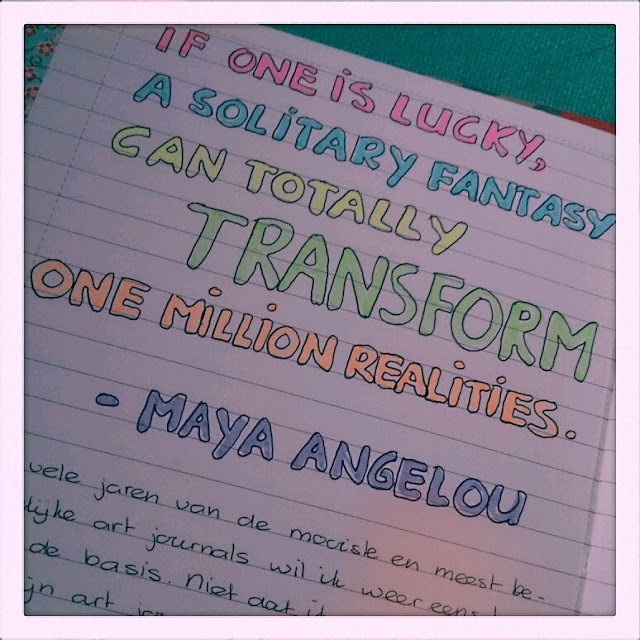 IF ONE iS LUCKY,
A SOLiTARY FANTASY
CAN TOTALLY
TRANSFORM
ONE MiLLiON REALiTiES.
- MAYA ANGELOU
vele jaren van de mooiste en meest be-
lijke art journals wil ik weer eens
de basis. Niet dat
art